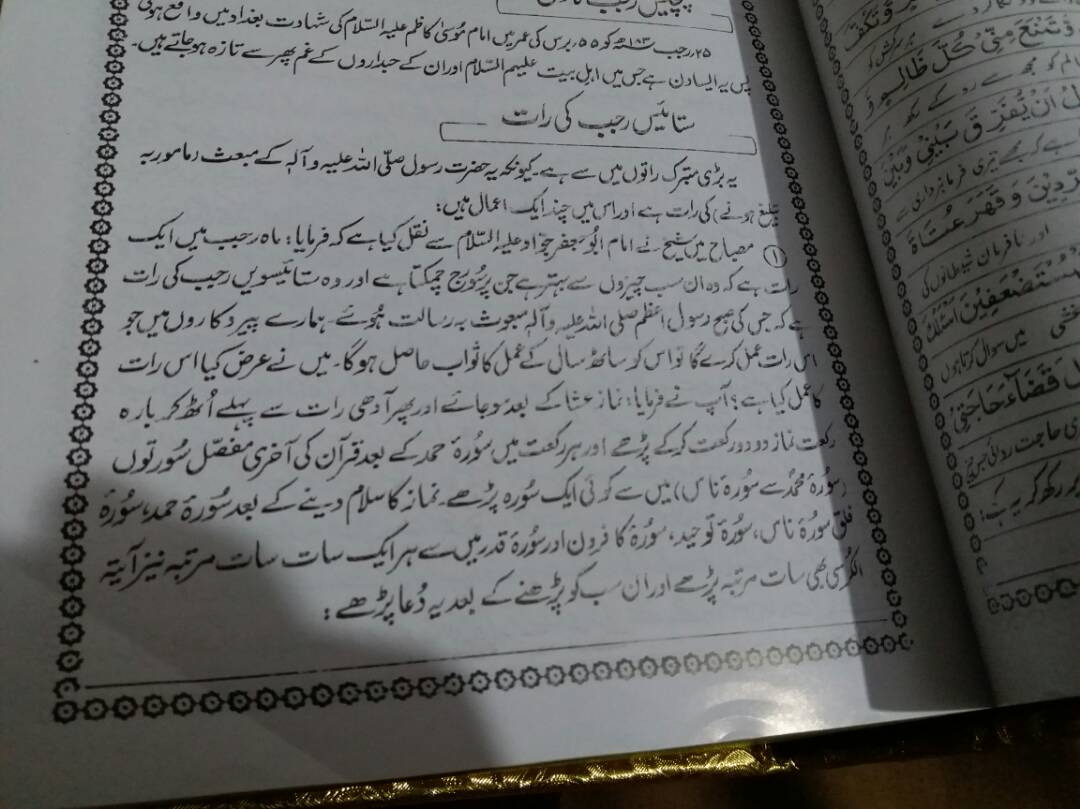 پچیس رجب کا دن
۲۵ رجب ۱۸۳ھ کو ۵۵ برس کی عمر میں امام موسیٰ کاظم علیہ السلام کی شہادت بغداد میں واقع ہوئی
پس یہ ایسا دن ہے جس میں اہل بیت علیہم السلام اور ان کے حبداروں کے غم پھر سے تازہ ہو جاتے ہیں۔
ستائیس رجب کی رات
یہ بڑی متبرک راتوں میں سے ہے۔ کیونکہ یہ حضرت رسول صلی اللہ علیہ وآلہ کے مبعث (مامور بہ
تبلغ ہونے) کی رات ہے اور اس میں چند ایک اعمال ہیں:
(۱) مصباح میں شیخ نے امام ابو جعفر جواد علیہ السلام سے نقل کیا ہے کہ فرمایا: ماہ رجب میں ایک
رات ہے کہ وہ ان سب چیزوں سے بہتر ہے جن پر سورج چمکتا ہے اور وہ ستائیسویں رجب کی رات
ہے کہ جس کی صبح رسول اعظم صلی اللہ علیہ وآلہ مبعوث بہ رسالت ہوئے۔ ہمارے پیروکاروں میں جو
اس رات عمل کرے گا تو اس کو ساٹھ سال کے عمل کا ثواب حاصل ہوگا۔ میں نے عرض کیا اس رات
کا عمل کیا ہے؟ آپ نے فرمایا: نماز عشا کے بعد سو جائے اور پھر آدھی رات سے پہلے اُٹھ کر بارہ
رکعت نماز دو دو رکعت کر کے پڑھے اور ہر رکعت میں سورۂ حمد کے بعد قرآن کی آخری مفصل سورتوں
(سورۂ محمدؐ سے سورۂ ناس) میں سے کوئی ایک سورہ پڑھے۔ نماز کا سلام دینے کے بعد سورۂ حمد، سورۂ
فلق سورۂ ناس، سورۂ توحید، سورۂ کافرون اور سورۂ قدر میں سے ہر ایک سات سات مرتبہ نیز آیۃ
الکرسی بھی سات مرتبہ پڑھے اور ان سب کو پڑھنے کے بعد یہ دُعا پڑھے:
وَتَمْنَعَ مِنِّي كُلَّ ظَالِمٍ وَ
اَنْ يُفَرِّقَ بَيْنِيْ وَبَيْنَ
وَقَهَرَ عُتَاةَ
اور نافرمان شیطانوں کی
میں سوال کرتا ہوں
قَضَآءَ حَاجَتِيْ